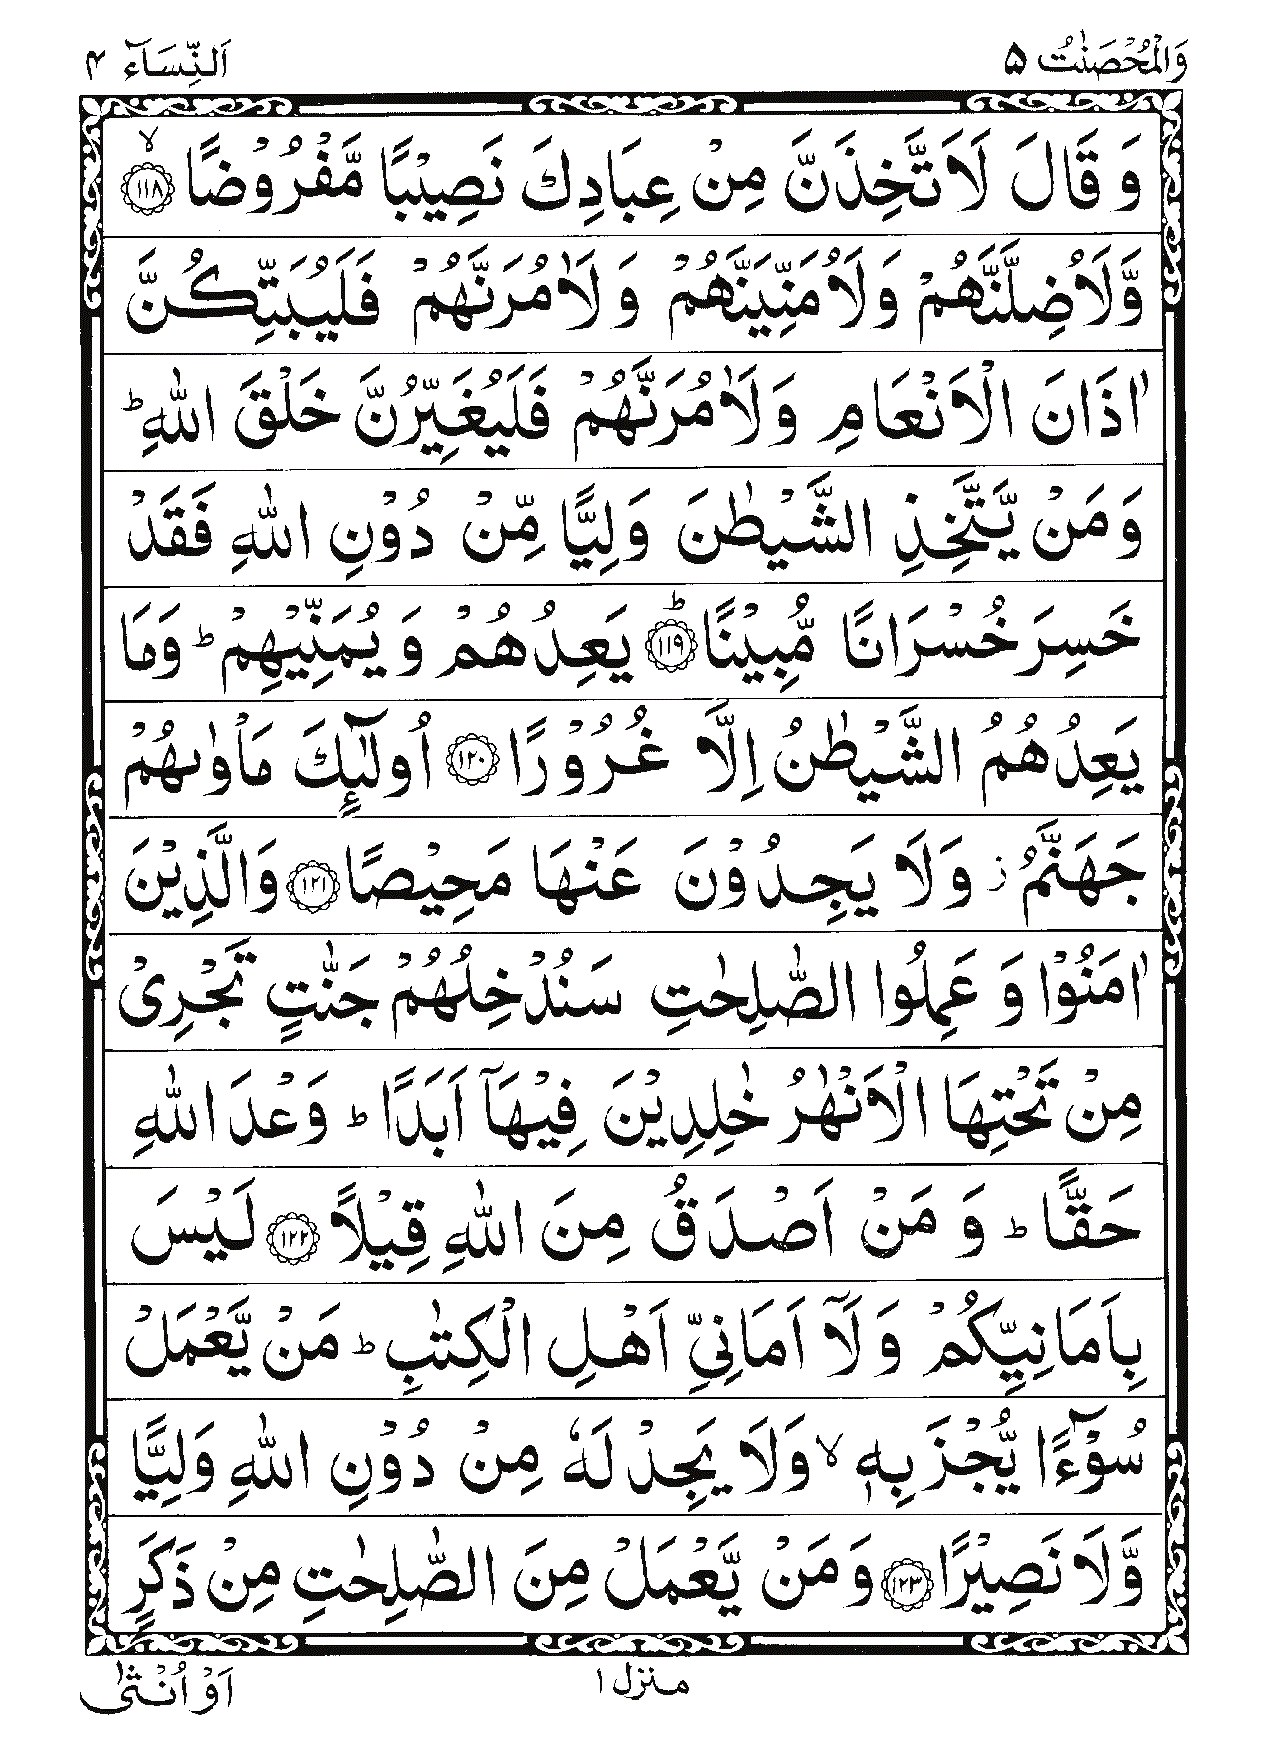 وَالْمُحْصَنٰتُ ۵
اَلنِّسَآء ۴
وَ قَالَ لَاَتَّخِذَنَّ مِنْ عِبَادِكَ نَصِيْبًا مَّفْرُوْضًا ۙ﴿۱۱۸﴾
وَّلَاُضِلَّنَّهُمْ وَ لَاُمَنِّيَنَّهُمْ وَ لَاٰمُرَنَّهُمْ فَلَيُبَتِّكُنَّ
اٰذَانَ الْاَنْعَامِ وَ لَاٰمُرَنَّهُمْ فَلَيُغَيِّرُنَّ خَلْقَ اللّٰهِ ؕ
وَ مَنْ يَّتَّخِذِ الشَّيْطٰنَ وَلِيًّا مِّنْ دُوْنِ اللّٰهِ فَقَدْ
خَسِرَ خُسْرَانًا مُّبِيْنًا ؕ﴿۱۱۹﴾ يَعِدُهُمْ وَ يُمَنِّيْهِمْ ؕ وَمَا
يَعِدُهُمُ الشَّيْطٰنُ اِلَّا غُرُوْرًا ﴿۱۲۰﴾ اُولٰٓئِكَ مَاْوٰىهُمْ
جَهَنَّمُ ؗ وَلَا يَجِدُوْنَ عَنْهَا مَحِيْصًا ﴿۱۲۱﴾ وَالَّذِيْنَ
اٰمَنُوْا وَ عَمِلُوا الصّٰلِحٰتِ سَنُدْخِلُهُمْ جَنّٰتٍ تَجْرِيْ
مِنْ تَحْتِهَا الْاَنْهٰرُ خٰلِدِيْنَ فِيْهَاۤ اَبَدًا ؕ وَعْدَ اللّٰهِ
حَقًّا ؕ وَ مَنْ اَصْدَقُ مِنَ اللّٰهِ قِيْلًا ﴿۱۲۲﴾ لَيْسَ
بِاَمَانِيِّكُمْ وَ لَاۤ اَمَانِيِّ اَهْلِ الْكِتٰبِ ؕ مَنْ يَّعْمَلْ
سُوْٓءًا يُّجْزَ بِهٖ ۙ وَلَا يَجِدْ لَهٗ مِنْ دُوْنِ اللّٰهِ وَلِيًّا
وَّلَا نَصِيْرًا ﴿۱۲۳﴾ وَ مَنْ يَّعْمَلْ مِنَ الصّٰلِحٰتِ مِنْ ذَكَرٍ
منزل ۱
اَوْ اُنْثٰى